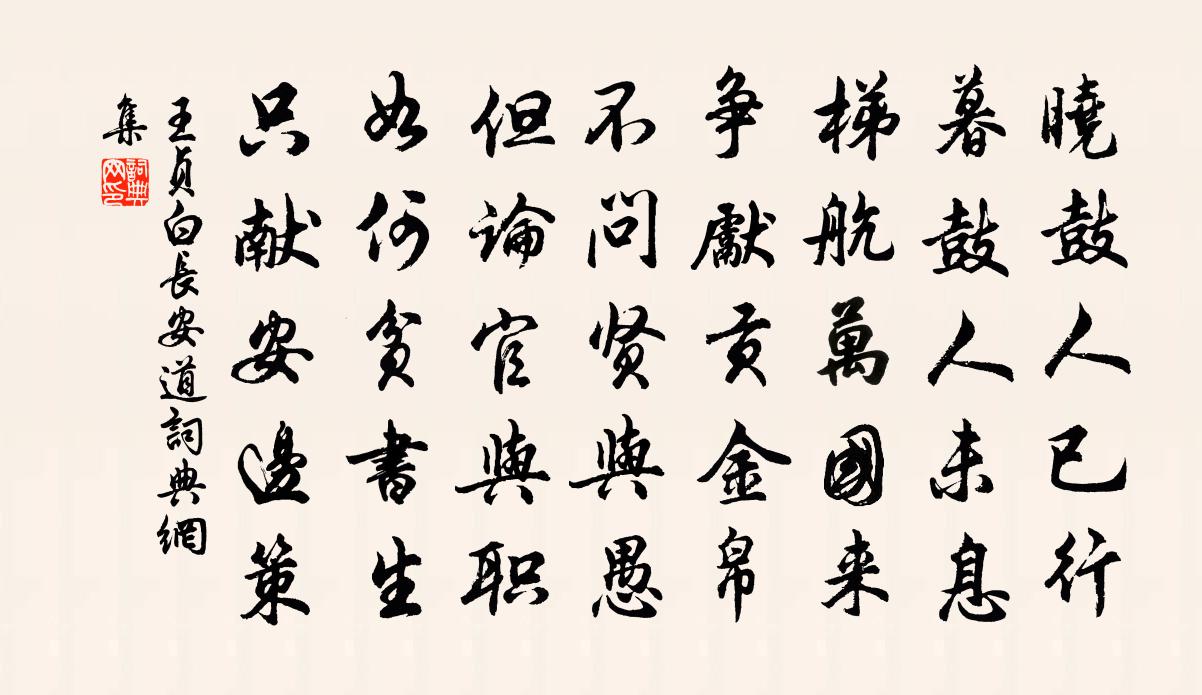 曉鼓人已行
暮鼓人未息
梯航萬國来
争獻貢金帛
不问贤與愚
但論官與职
如何貧書生
只献安邊策
王貞白長安道詞典網
集
詞典网印